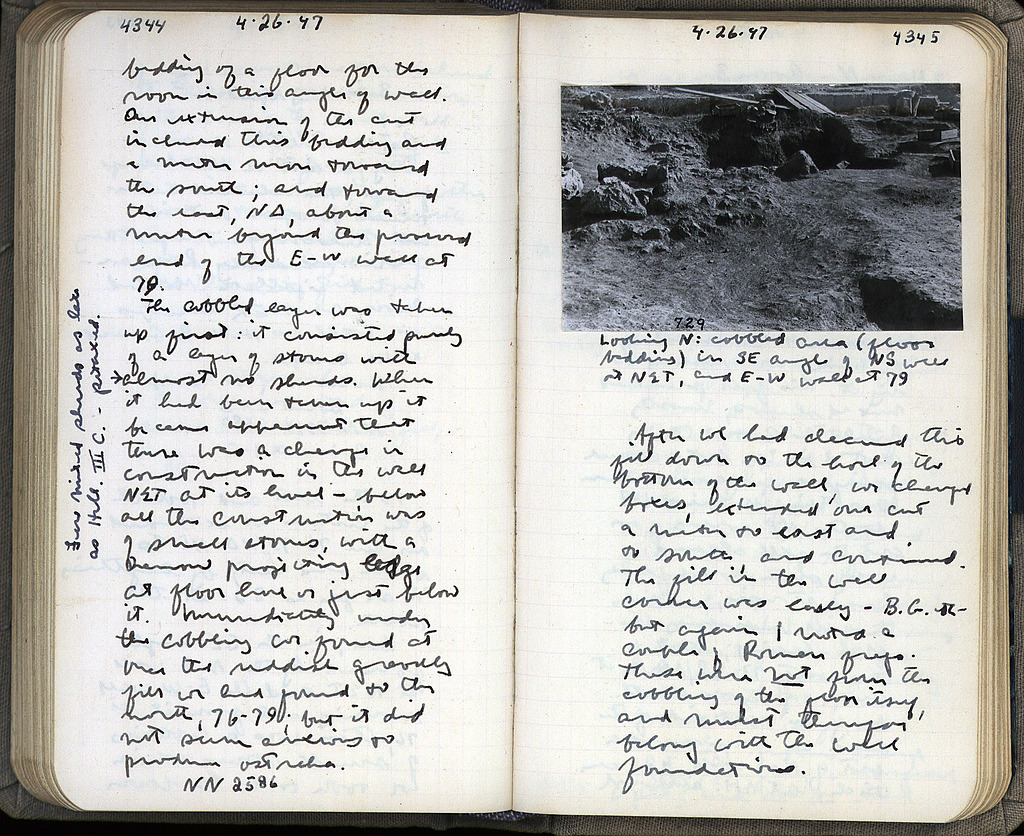 4344 4·26·47
bedding of a floor for the
room in this angle of wall.
Our extension of the cut
included this bedding and
a meter more toward
the south; and toward
the east, NΔ, about a
meter beyond the preserved
end of the E-W wall at
79.
The cobbled layer was taken
up first: it consisted purely
of a layer of stones with
almost no sherds. When
it had been taken up it
became apparent that
there was a change in
construction in the wall
NΣT at its level - below
all the construction was
of small stones, with a
narrow projecting ledge
at floor level or just below
it. Immediately under
the cobbling we found at
once the reddish gravelly
fill we had found to the
north, 76-79; but it did
not seem anxious to
produce ostraka.
NN 2586
Few mixed sherds as late
as Hell. III C. -
4·26·47 4345
729
Looking N: cobbled area (floor
bedding) in SE angle of NS wall
at NΣT, and E-W wall at 79
After we had cleared this
fill down to the level of the
bottom of the wall, we changed
boxes, extended our cut
a meter to east and
to south and continued.
The fill in the wall
corner was early - B.G. etc -
but again I noted a
couple of Roman frags.
These were not from the
cobbling of the floor itself,
and must therefore
belong with the wall
foundations.